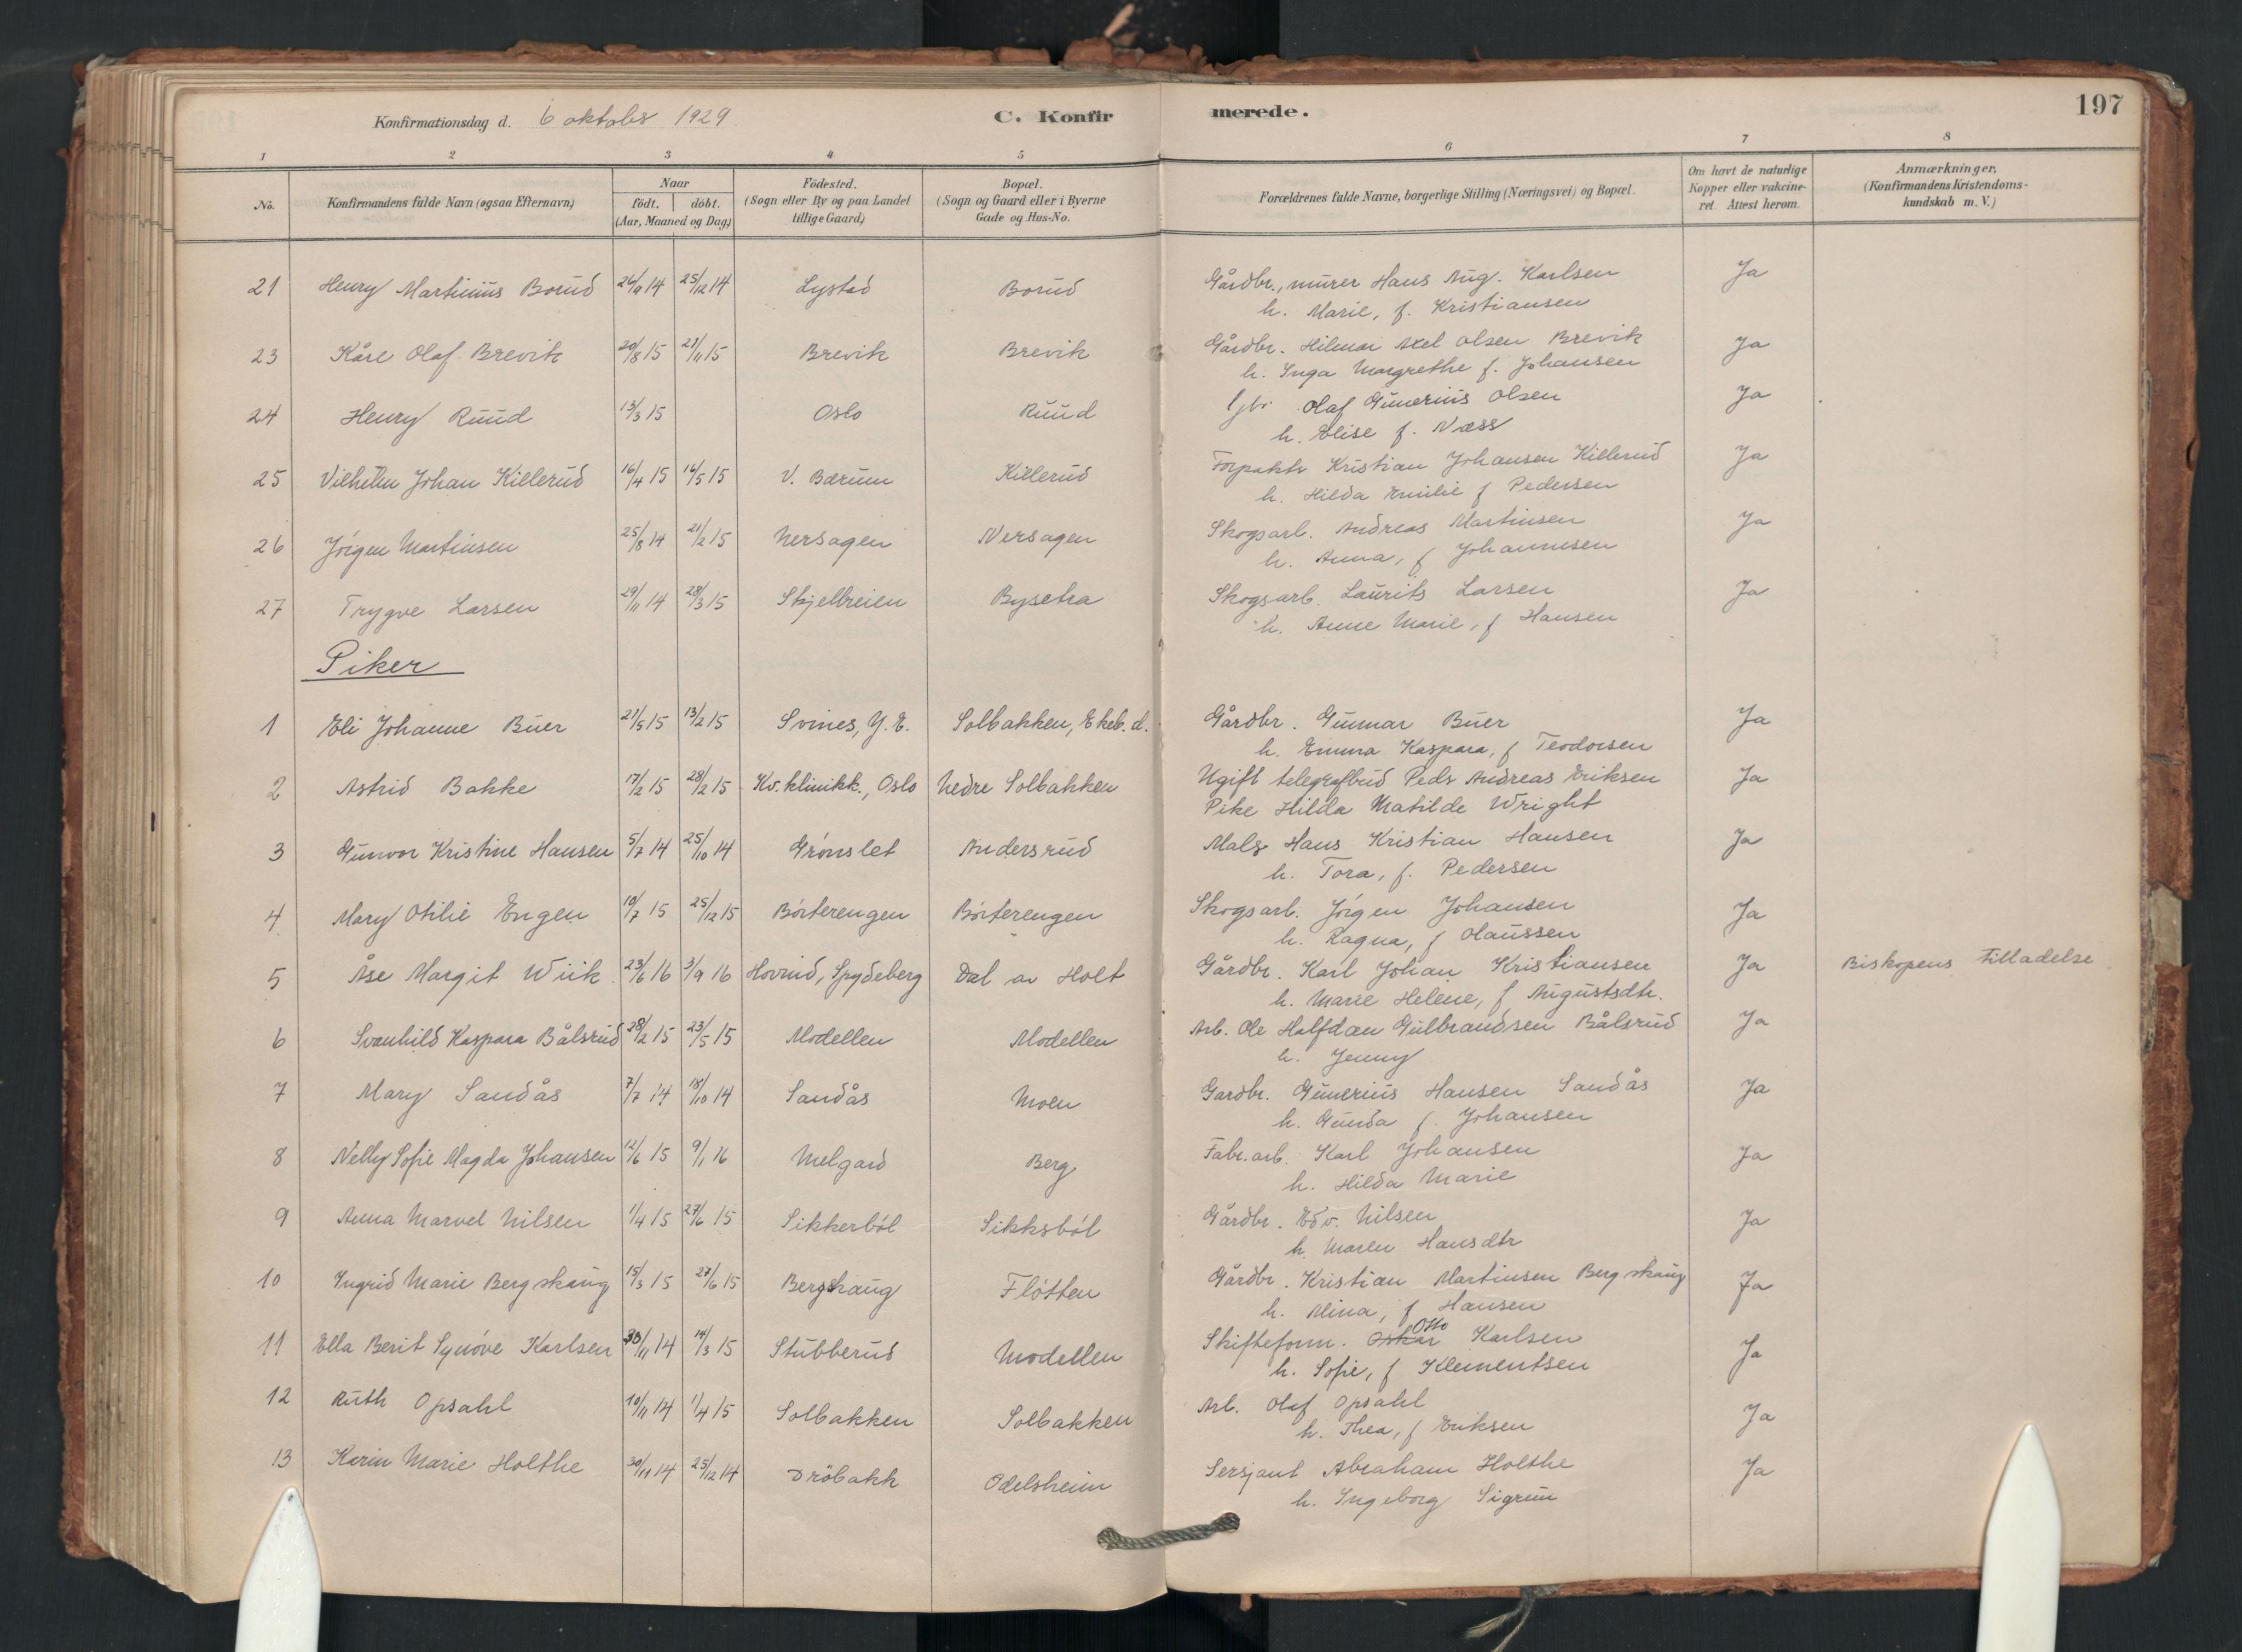 Konfirmationsdag d. 6 oktober 1929. C. Konfirmerede. 197
1 2 3 4 5 6 7 8
No. Konfirmandens fulde Navn (ogsaa Efternavn) Naar født. døbt. (Aar, Maaned og Dag) Födested. (Sogn eller By og paa Landet tillige Gaard) Bopæl. (Sogn og Gaard eller i Byerne Gade og Hus-No. Forældrenes fulde Navne, borgerlige Stilling (Næringsvei) og Bopæl. Om havt de naturlige Kopper eller vakcineret. Attest herom. Anmærkninger. (Konfirmandens Kristendomskundskab m. V.)
21 Henry Martinius Borud 26/9 14 25/12 14 Lystad Borud Gårdbr., murer Hans Aug. Karlsen Ja
h. Marie, f. Kristiansen
23 Kåre Olaf Brevik 20/8 15 21/11 15 Brevik Brevik Gårdbr. Hilmar Axel Olsen Brevik Ja
h. Inga Margrethe f. Johansen
24 Henry Ruud 13/3 15 Oslo Ruud Olaf Gunerius Olsen Ja
h. Elise f. Næss
25 Vilhelm Johan Killerud 16/4 15 16/5 15 V. Bærum Killerud Forpakter Kristian Johansen Killerud Ja
h. Hilda Emilie f Pedersen
26 Jörgen Martinsen 25/8 14 21/2 15 Nersagen Nersagen Skogsarb. Andreas Martinsen Ja
h. Anna, f Johannesen
27 Trygve Larsen 29/11 14 28/3 15 Skjellreien Bysetra Skogsarb. Laurits Larsen Ja
h. Anne Marie, f Hansen
Piker
1 Eli Johanne Buer 21/5 15 13/2 15 Svines, Y. E. Solbakken, Ekeb. d. Gårdbr. Gunnar Buer Ja
h. Emma Kaspara, f Teodorsen
2 Astrid Bakke 17/2 15 28/2 15 Kv. klinikk., Oslo Nedre Solbakken Ugift telegrafbud Peder Andreas Eriksen Ja
Pike Hilda Matilde Wright
3 Gunvor Kristine Hansen 5/7 14 25/10 14 Grönslet Andersrud Maler Hans Kristian Hansen Ja
h. Tora, f. Pedersen
4 Mary Otilie Engen 10/7 15 25/12 15 Börterengen Börterengen Skogsarb. Jörgen Johansen Ja
h. Ragna, f Olaussen
5 Åse Margit Wiik 23/6 16 3/9 16 Hovind, Spydeberg Dal av Holt Gårdbr. Karl Johan Kristiansen Ja Biskopens tilladelse
h. Marie Helene, f Augustsdtr.
6 Svanhild Kaspara Bålsrud 28/2 15 23/5 15 Modellen Modellen Arb. Ole Halfdan Gulbrandsen Bålsrud Ja
h. Jenny
7 Mary Sandås 7/7 14 18/10 14 Sandås Moen Gardbr. Gunerius Hansen Sandås Ja
h. Gunda f. Johansen
8 Nelly Sofie Magda Johansen 12/6 15 9/1 16 Melgard Berg Fabr.arb. Karl Johansen Ja
h. Hilda Marie
9 Anna Marvel Nilsen 1/4 15 27/6 15 Sikkerböl Sikksböl Gårdbr. Edv. Nilsen Ja
h. Maren Hansdtr
10 Ingrid Marie Bergskaug 15/3 15 27/6 15 Bergskaug Flötten Gårdbr. Kristian Martinsen Bergskaug Ja
h. Alina, f Hansen
11 Ella Berit Synöve Karlsen 30/11 14 14/3 15 Stubberud Modellen Skifteform. Oskar Otto Karlsen Ja
h. Sofie, f Klementsen
12 Ruth Opsahl 10/11 14 1/4 15 Solbakken Solbakken Arb. Olaf Opsahl Ja
h. Thea, f Eriksen
13 Karin Marie Holthe 30/11 14 25/12 14 Dröbakk Odelsheim Sersjant Abraham Holthe Ja
h. Ingeborg Sigrun